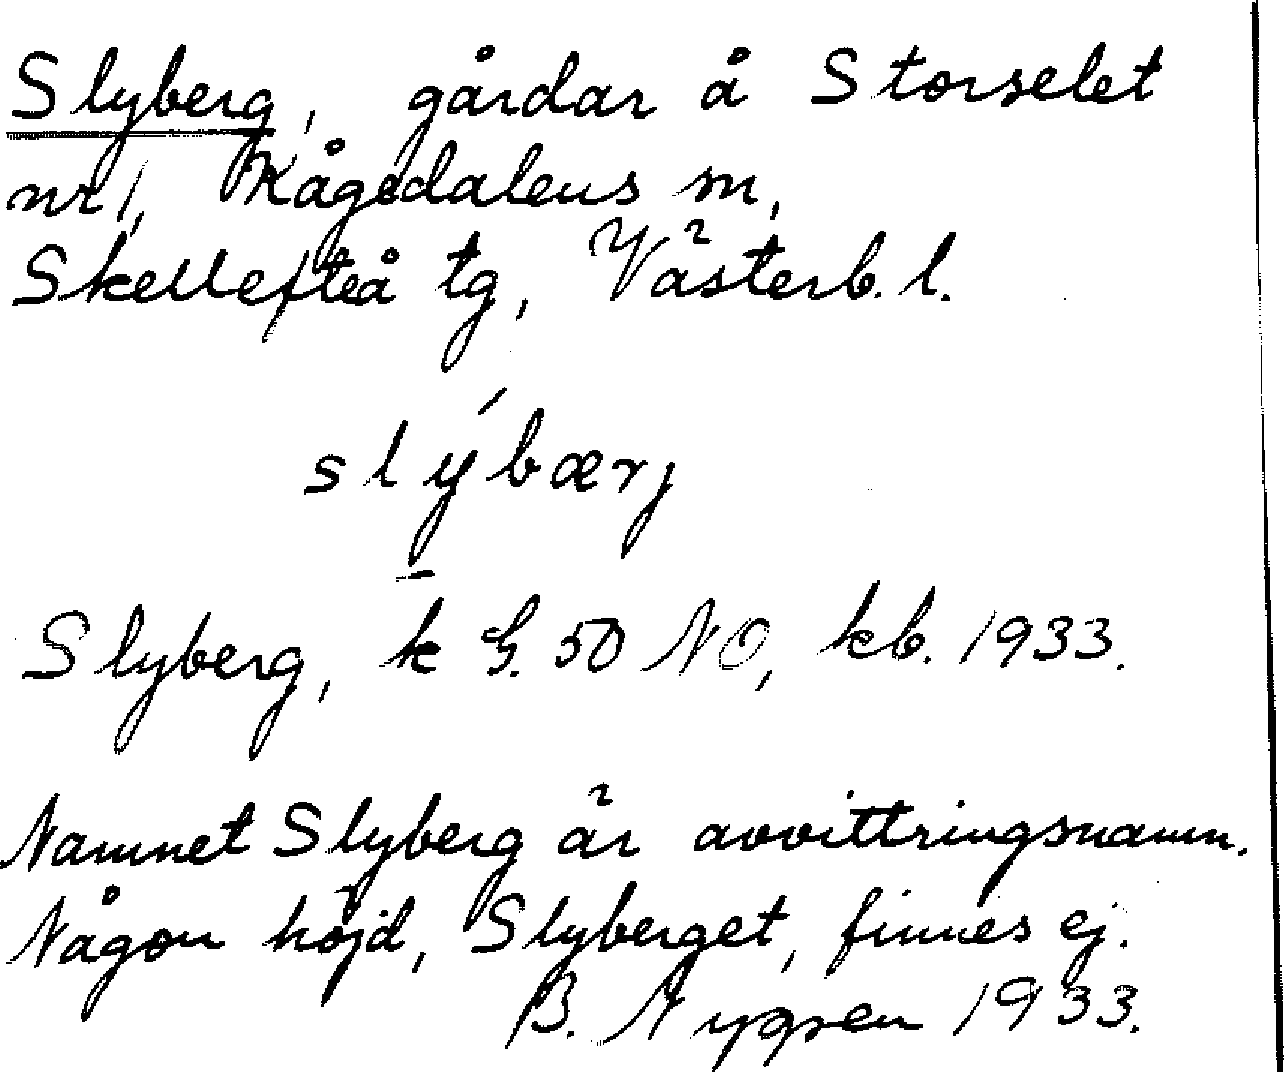 Slyberg, gårdar å Storselet
nr 1, Kågedalens sn,
Skellefteå tg, Västerb. l.
slýbærj
Slyberg, k G. 50 NO, kb. 1933.
Namnet Slyberg är avvittringsnamn.
Någon höjd, Slyberget, finnes ej.
B. Nygren 1933.